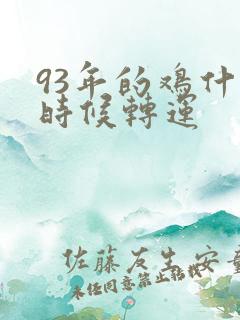 93年的鸡什
時候轉运
佐藤友生安
未任同意禁止转载